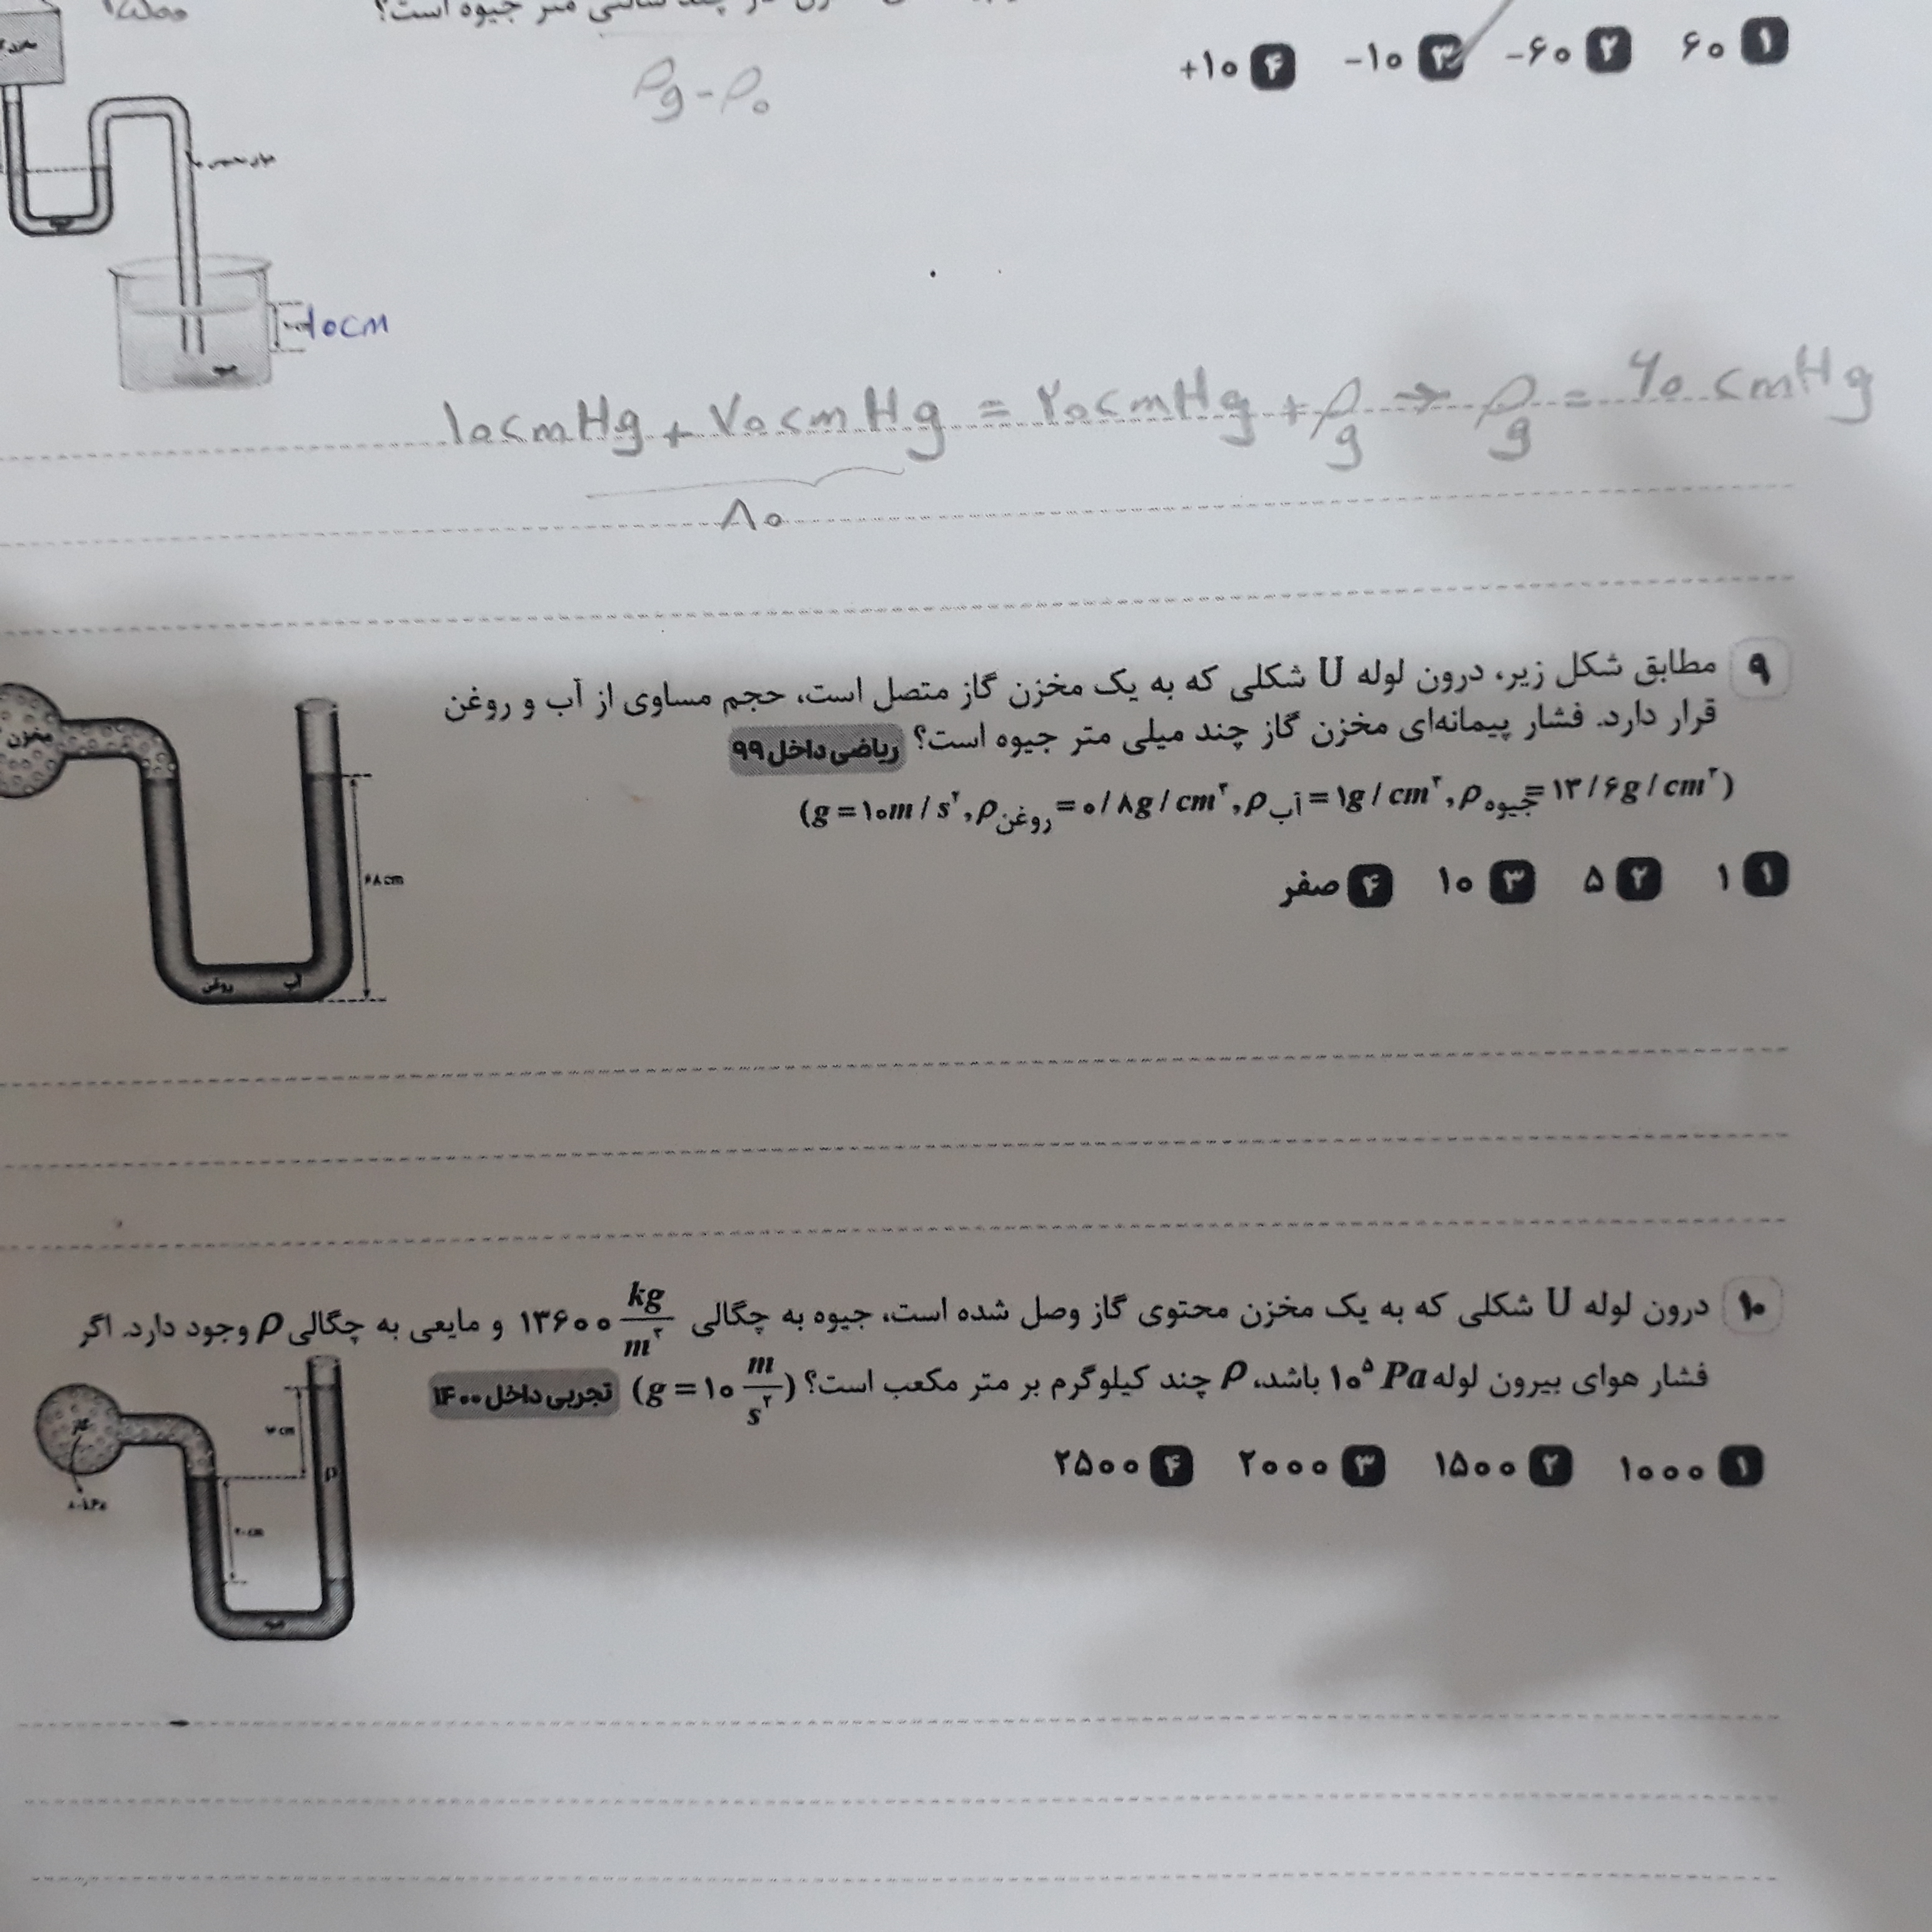 چند سانتی متر جیوه است؟
۱ ۶۰ ۲ -۶۰ ۳ -۱۰ ۴ +۱۰
Pg - P۰
10cm
۱۰cmHg + ۷۰cmHg = ۲۰cmHg + Pg → Pg = ۶۰ cmHg
۸۰
۹ مطابق شکل زیر، درون لوله U شکلی که به یک مخزن گاز متصل است، حجم مساوی از آب و روغن
قرار دارد. فشار پیمانه‌ای مخزن گاز چند میلی متر جیوه است؟ ریاضی داخل ۹۹
(g = ۱۰m / s², ρروغن = ۰/۸g / cm³, ρآب = ۱g / cm³, ρجیوه = ۱۳/۶g / cm³)
۱ ۱ ۲ ۵ ۳ ۱۰ ۴ صفر
مخزن
۶۸cm
روغن آب
۱۰ درون لوله U شکلی که به یک مخزن محتوی گاز وصل شده است، جیوه به چگالی ۱۳۶۰۰ kg/m³ و مایعی به چگالی ρ وجود دارد. اگر
فشار هوای بیرون لوله ۱۰⁵ Pa باشد، ρ چند کیلوگرم بر متر مکعب است؟ (g = ۱۰ m/s²) تجربی داخل ۱۴۰۰
۱ ۱۰۰۰ ۲ ۱۵۰۰ ۳ ۲۰۰۰ ۴ ۲۵۰۰
گاز
ρ